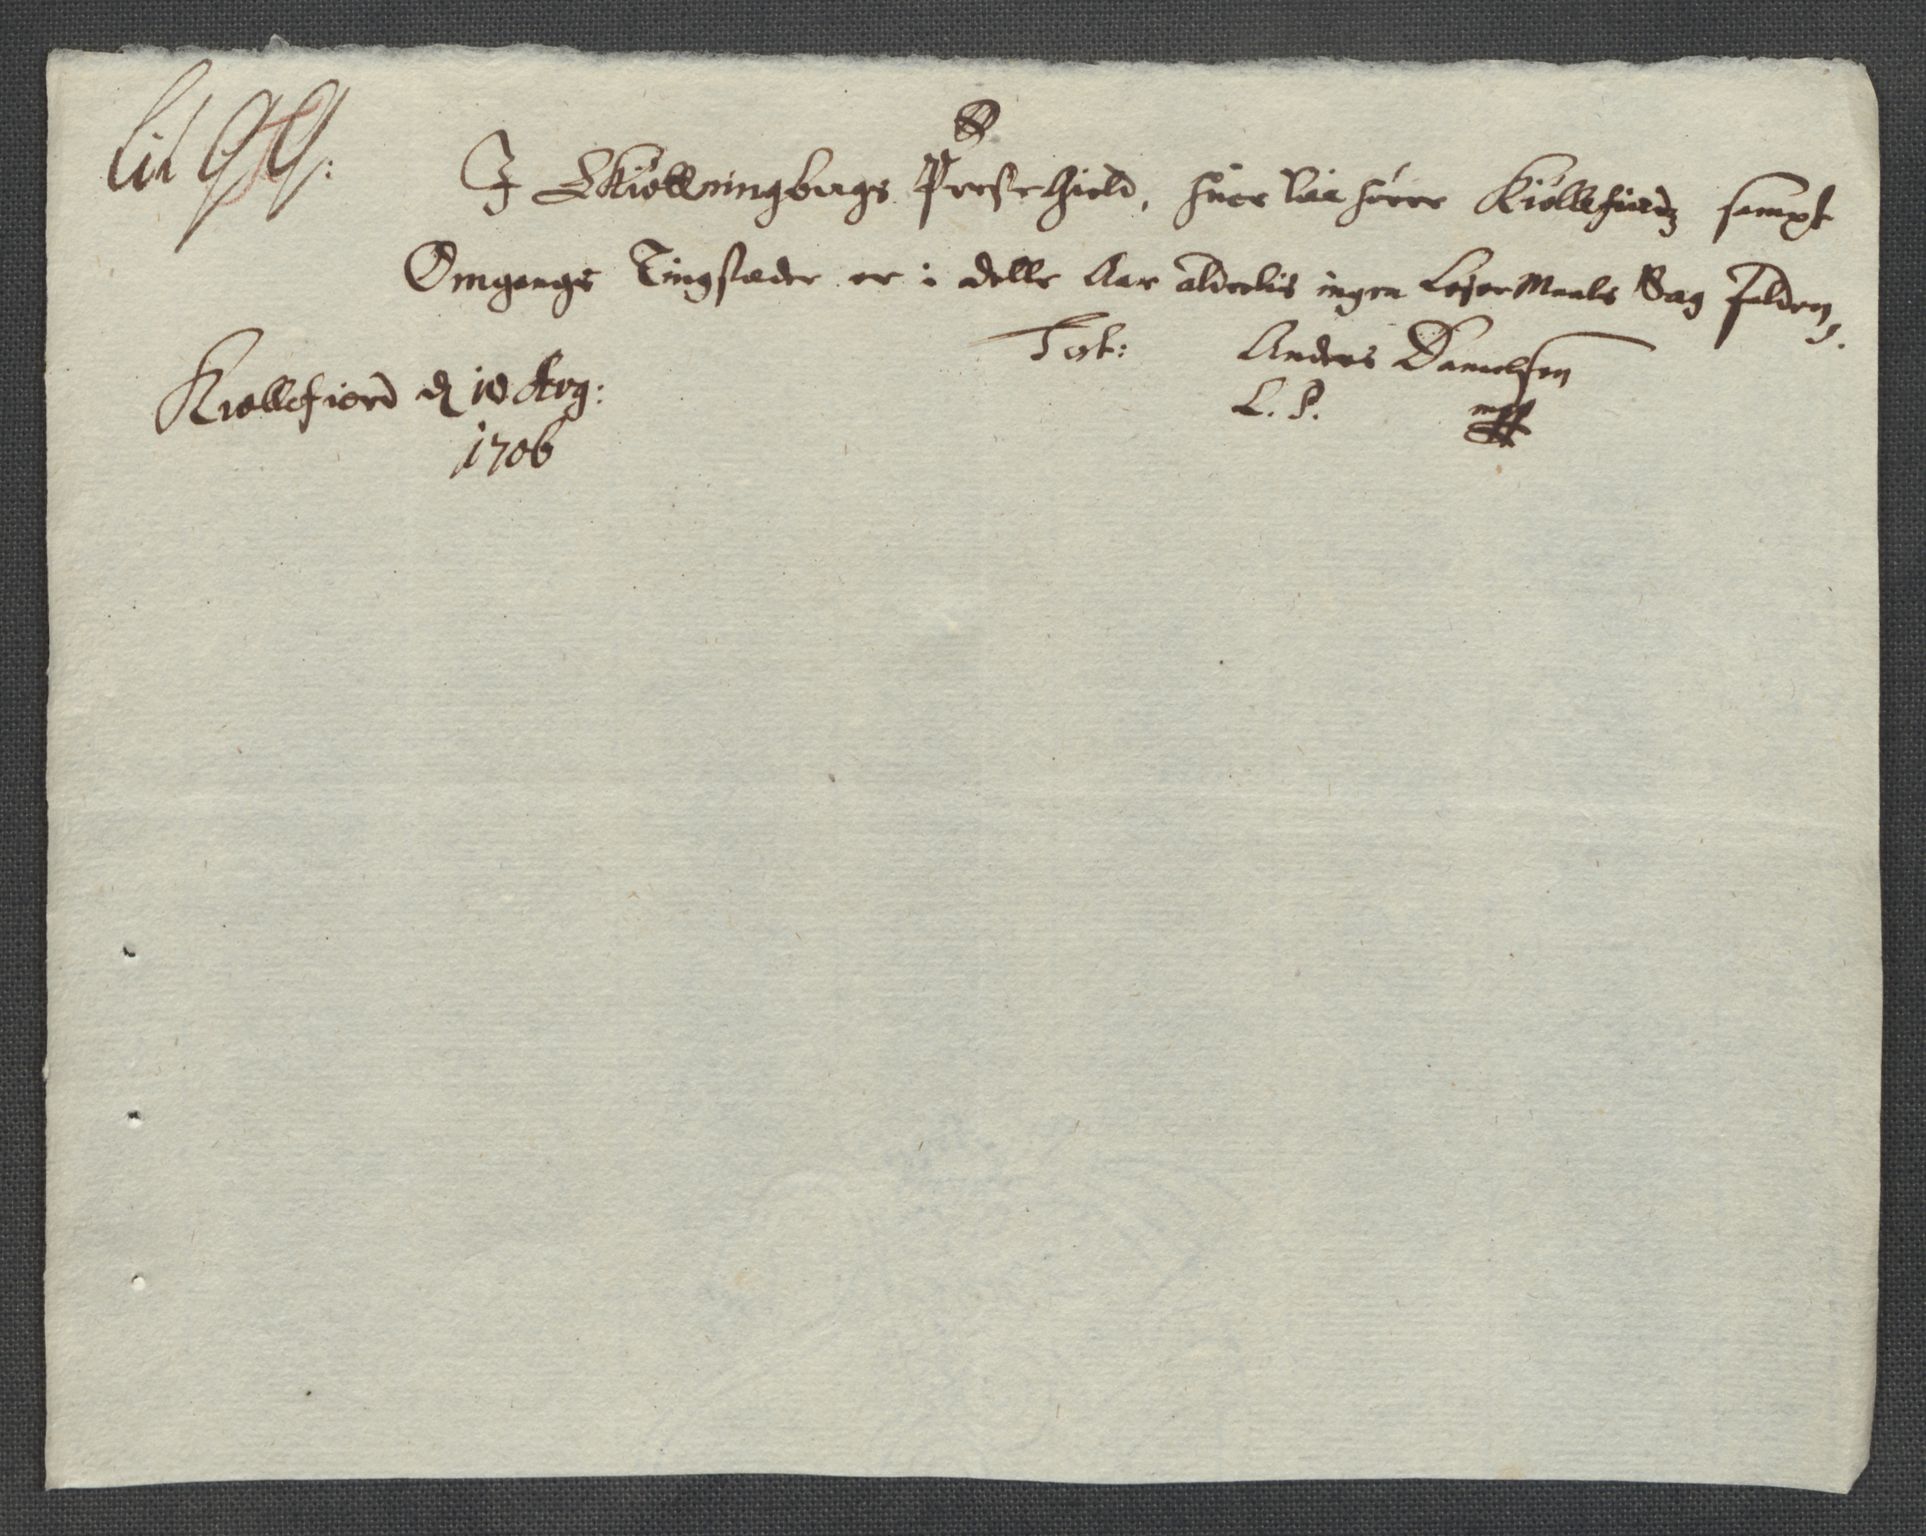 Lit GG:
I Skiøttningbergs Prestegield, huor til hører Kiøllefiordz sampt
Omgangs Tingstæder er i dette Aar aldeelis ingen Lejermaals Sag falden.
Test: Anders Danielsen
Kiøllefiord d 10 Aug:
L. S. mpp
1706